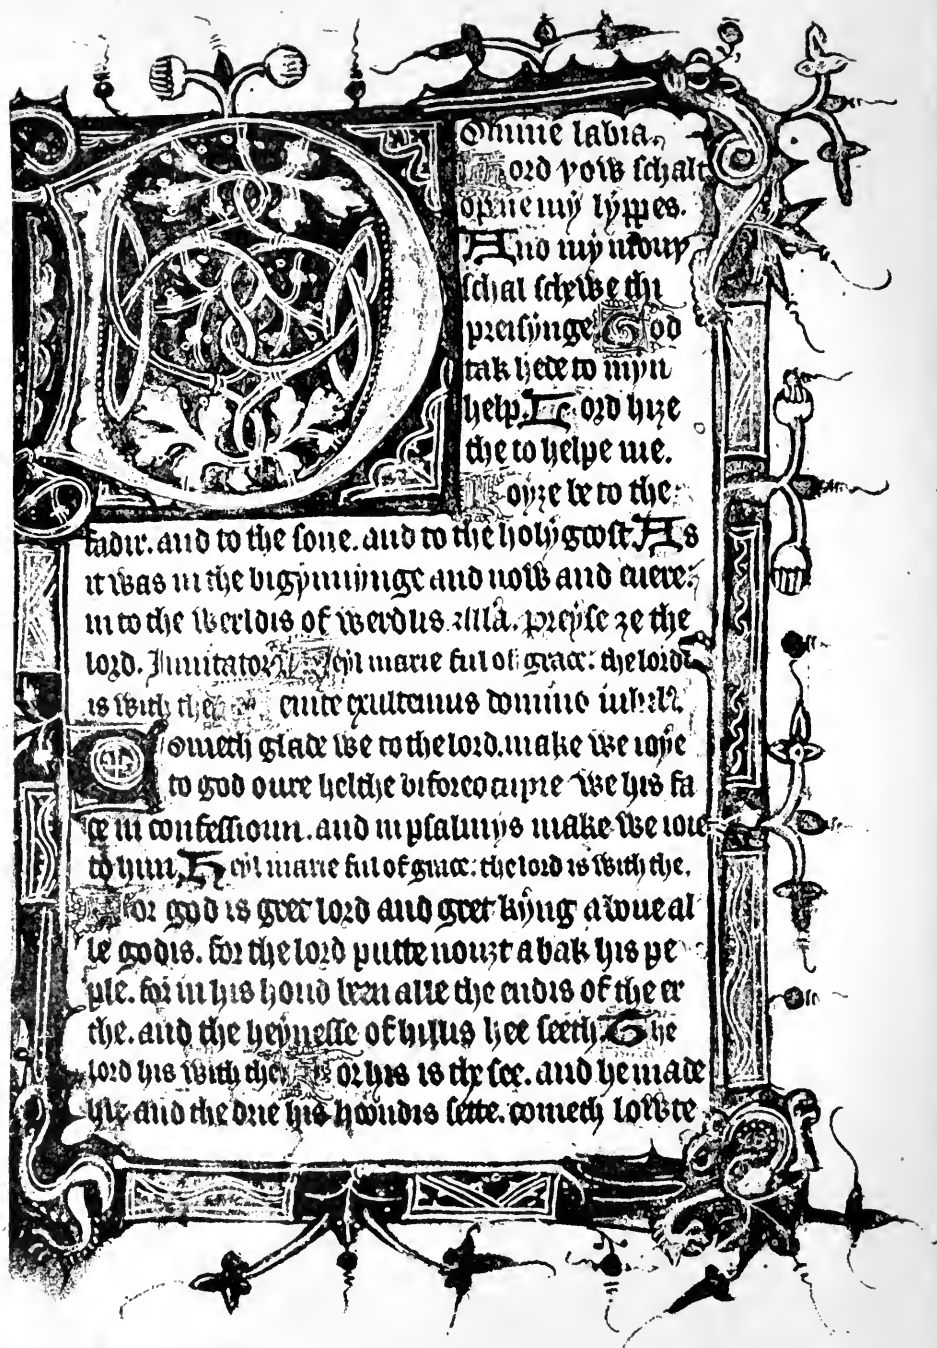 Domine labia.
Lord yow schalt
opne myn lyppes.
And my mouþ
schal schewe thi
preisynge God
tak hede to myn
help. Lord hize
the to helpe me.
Ioyze be to the
fadir. and to the sone. and to the holy goost. As
it was in the bigynnynge and now and euere.
in to the werldis of werdlis. alla. preyse ze the
lord. Inuitatory Heyl marie ful of grace: the lord
is with the Uenite exultemus domino iubil.
Cometh glade we to the lord. make we ioye
to god oure helthe bifore ocupie we his fa
ce in confessioun. and in psalmys make we ioie
to him. Heyl marie ful of grace: the lord is with the.
For god is gret lord and gret kyng aboue al
le godis. for the lord putte nouzt abak his pe
ple. for in his hond been alle the endis of the er
the. and the heynesse of hillus hee seeth. The
lord his with the For his is the see. and he made
hit and the drie his hoondis sette. cometh lowte